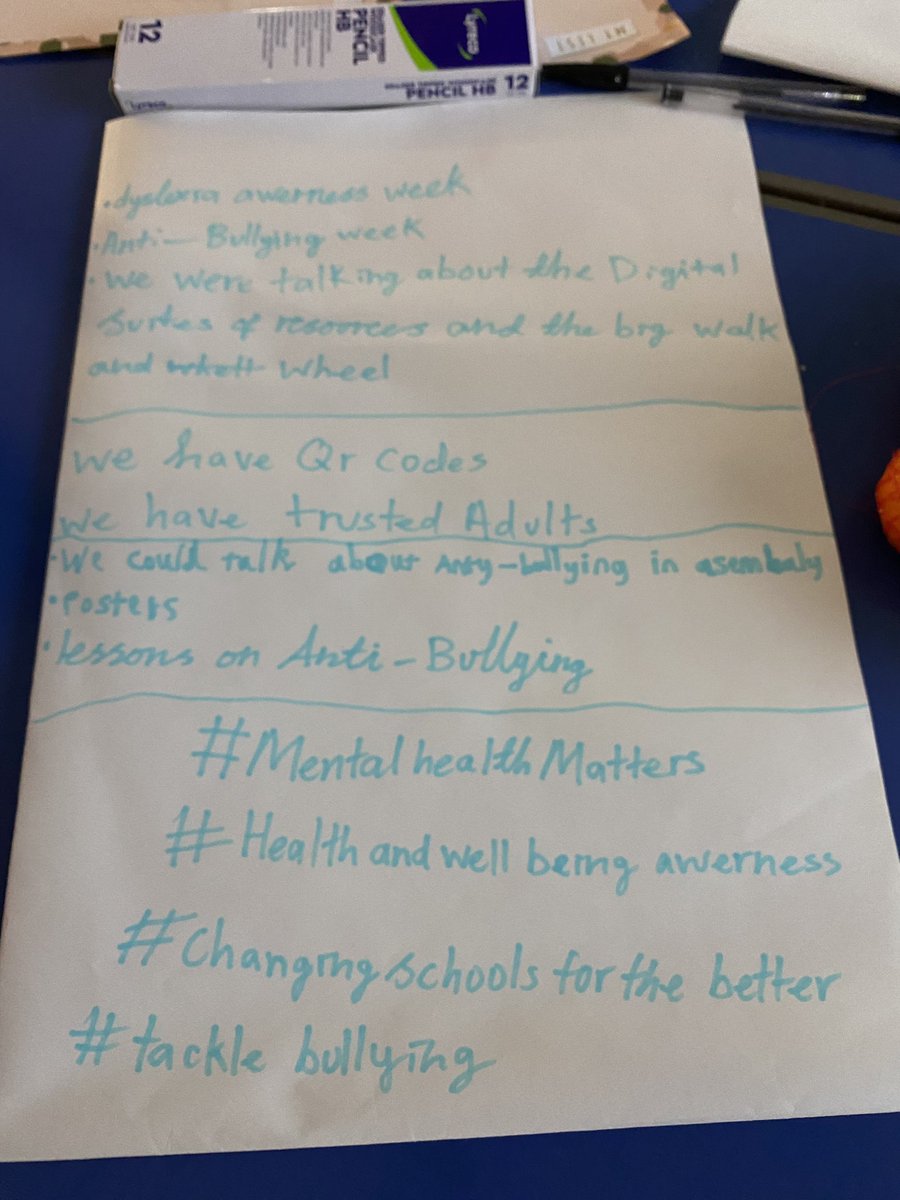 12
PENCIL HB
Lyreco
PENCIL HB 12
•dyslexia awerness week
•Anti-Bullying week
•We were talking about the Digital
Suites of resources and the big walk
and wheel
We have Qr codes
We have trusted Adults
•We could talk about Anty-bullying in asembaly
•Posters
•lessons on Anti-Bullying
#Mental health Matters
#Health and well being awerness
#Changing schools for the better
#tackle bullying